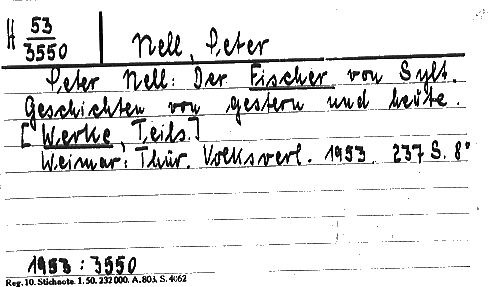 H 53/3550 Nell, Peter
Peter Nell: Der Fischer von Sylt.
Geschichten von gestern und heute.
[Werke, Teils.]
Weimar: Thür. Volksverl. 1953. 237 S. 8°
1953 : 3550
Reg. 10. Stichnote. 1. 50. 232 000. A. 803. S. 4062